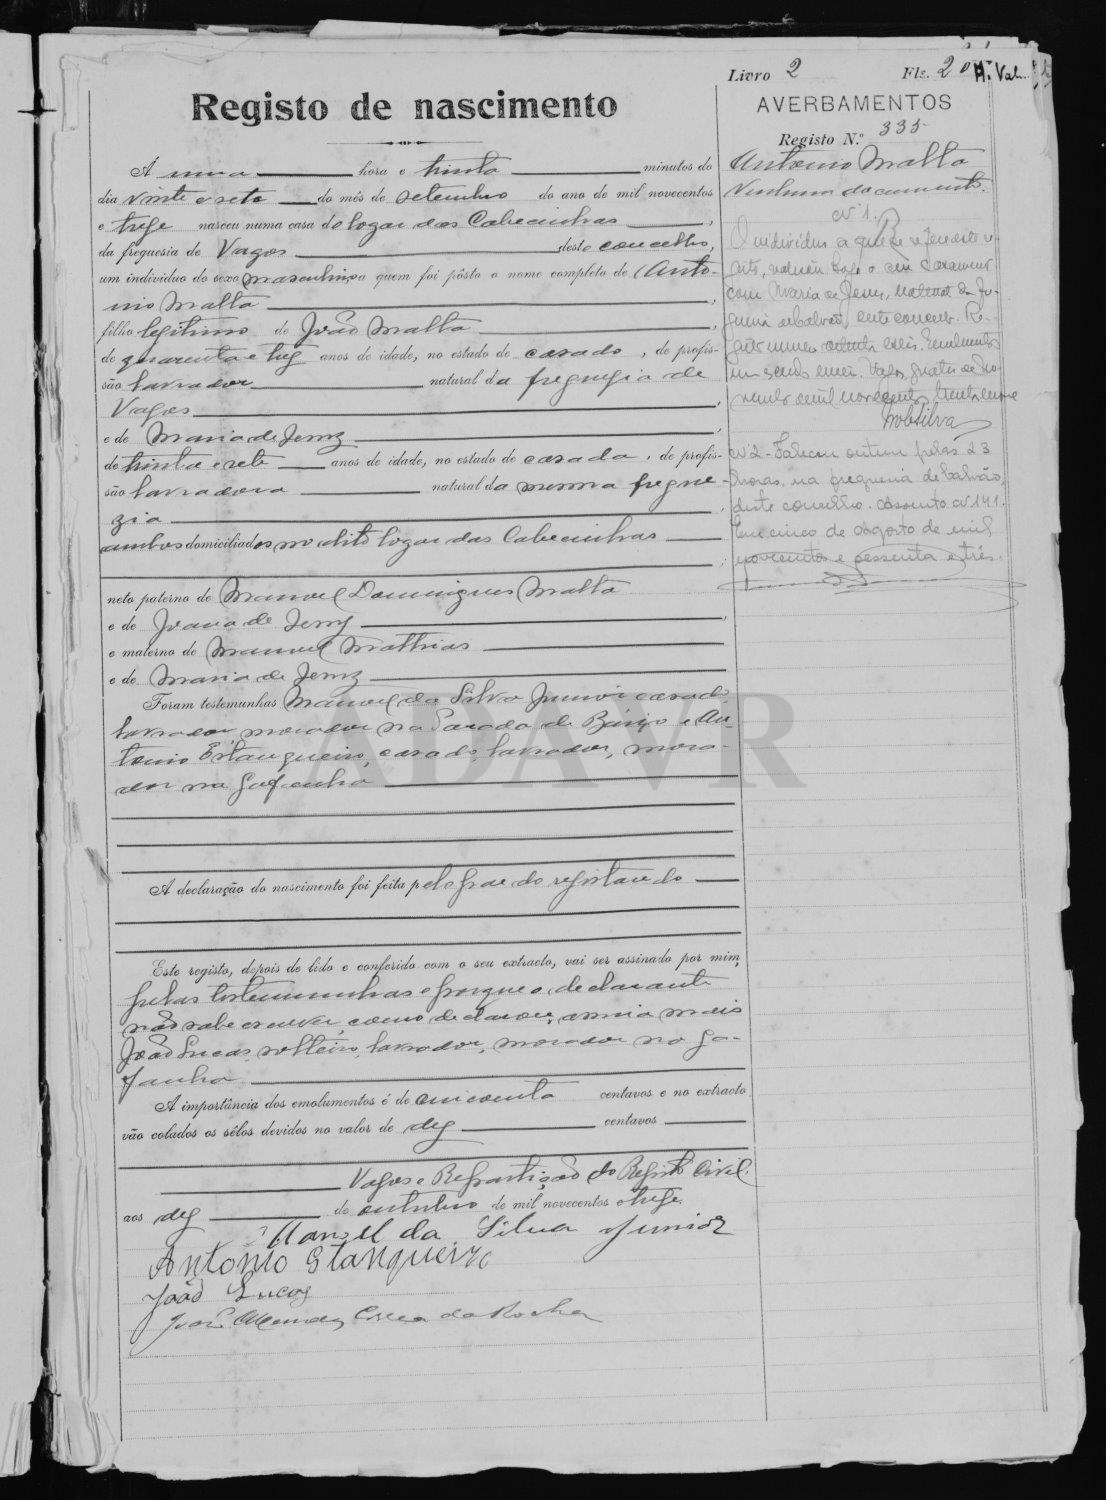 Livro 2 Fls. 20
H. Val.
Registo de nascimento
AVERBAMENTOS
Registo N.º 335
Antonio Malta
Nenhum documento.
Á uma hora e trinta minutos do
dia vinte e sete do mês de setembro do ano de mil novecentos
e treze nasceu numa casa do logar das Cabecinhas,
da freguesia de Vagos deste concelho,
um individuo do sexo masculino, a quem foi pôsto o nome completo de Anto-
nio Malta,
filho legitimo de João Malta,
de quarenta e trez anos de idade, no estado de casado, de profis-
são lavrador natural da freguezia de
Vagos,
e de Maria de Jesuz,
de trinta e sete anos de idade, no estado de casada, de profis-
são lavradora natural da mesma fregue-
zia,
ambos domiciliados no dito logar das Cabecinhas;
neto paterno de Manoel Domingues Malta
e de Joana de Jesuz,
e materno de Manuel Mathias
e de Maria de Jesuz
Foram testemunhas Manoel da Silva Junior casado
lavrador, morador na Parada de Baixo e An-
tonio Estanqueiro, casado, lavrador, mora-
dor na Gafanha
A declaração do nascimento foi feita pelo pae do registando
Este registo, depois de lido e conferido com o seu extracto, vai ser assinado por mim,
pelas testemunhas e porque o declarante
não sabe escrever, como declarou, assina mais
João Lucas, solteiro, lavrador, morador na Ga-
fanha
A importância dos emolumentos é de cincoenta centavos e no extracto
vão colados os sêlos devidos no valor de dez centavos
Vagos e Repartição do Registo Civil.
aos dez de outubro de mil novecentos e treze.
Manoel da Silva Junior
Antonio Stanqueiro
João Lucas
Mendes Correa da Rocha
Nº 1.
O individuo a que se refere este re-
gisto, contraiu hoje o seu casamento
com Maria de Jesus, natural da fre-
guesia de Calvão, deste concelho. Re-
gisto numero seis. Emolumentos
um escudo. Vagos, quatro de
mil novecentos trinta e nove
Silva
Nº 2 - Faleceu ontem pelas 23
horas, na freguesia de Calvão,
deste concelho. Assento nº 141.
Em cinco de Agosto de mil
novecentos e sessenta e três.
ADAVR